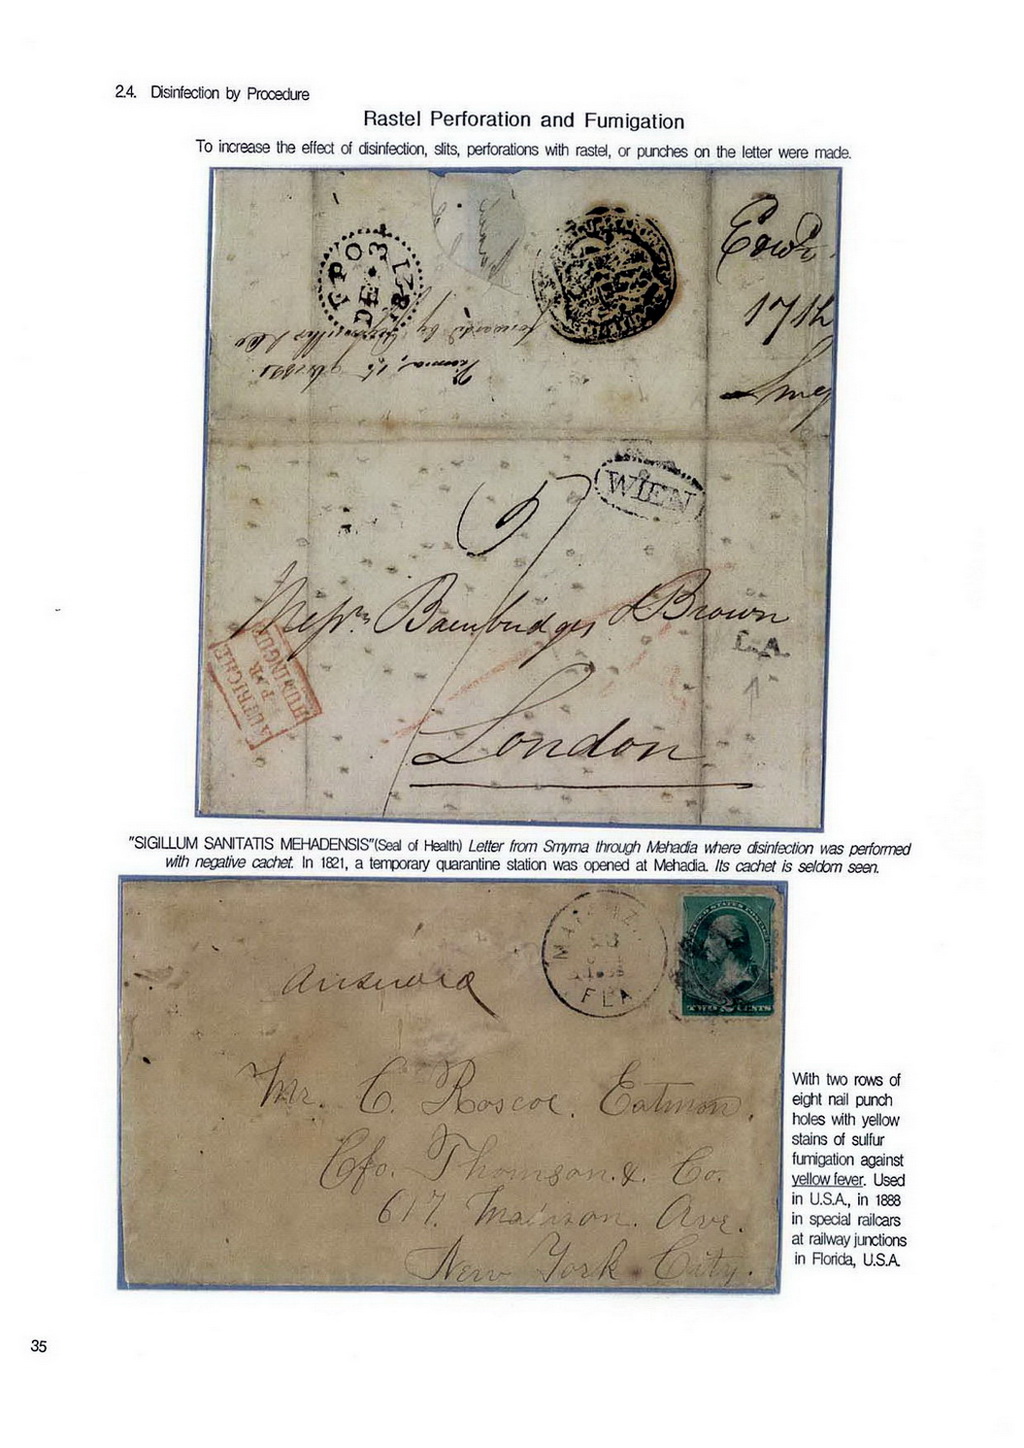 2.4. Disinfection by Procedure
Rastel Perforation and Fumigation
To increase the effect of disinfection, slits, perforations with rastel, or punches on the letter were made.
FPO
DE 3
1821
forwarded by
& Co
17th
WIEN
Messrs Bainbridges & Brown
L.A.
AUTRICHE
PAR
HUNINGUE
London
"SIGILLUM SANITATIS MEHADENSIS"(Seal of Health) Letter from Smyrna through Mehadia where disinfection was performed
with negative cachet. In 1821, a temporary quarantine station was opened at Mehadia. Its cachet is seldom seen.
FLA
TWO CENTS
Mr. C. Roscoe. Eatmon.
C/o. Thomson. & Co.
617. Madison. Ave.
New York City.
With two rows of
eight nail punch
holes with yellow
stains of sulfur
fumigation against
yellow fever. Used
in U.S.A., in 1888
in special railcars
at railway junctions
in Florida, U.S.A.
35